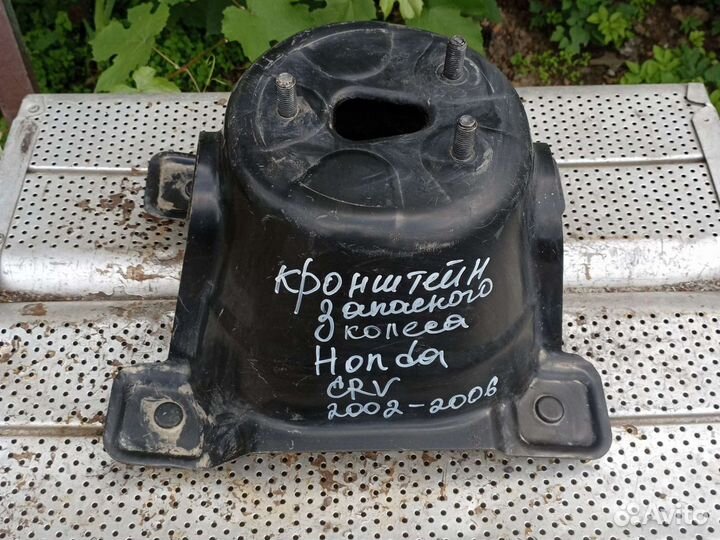 Кронштейн
запасного
колеса
Honda
CRV
2002-2006
Avito